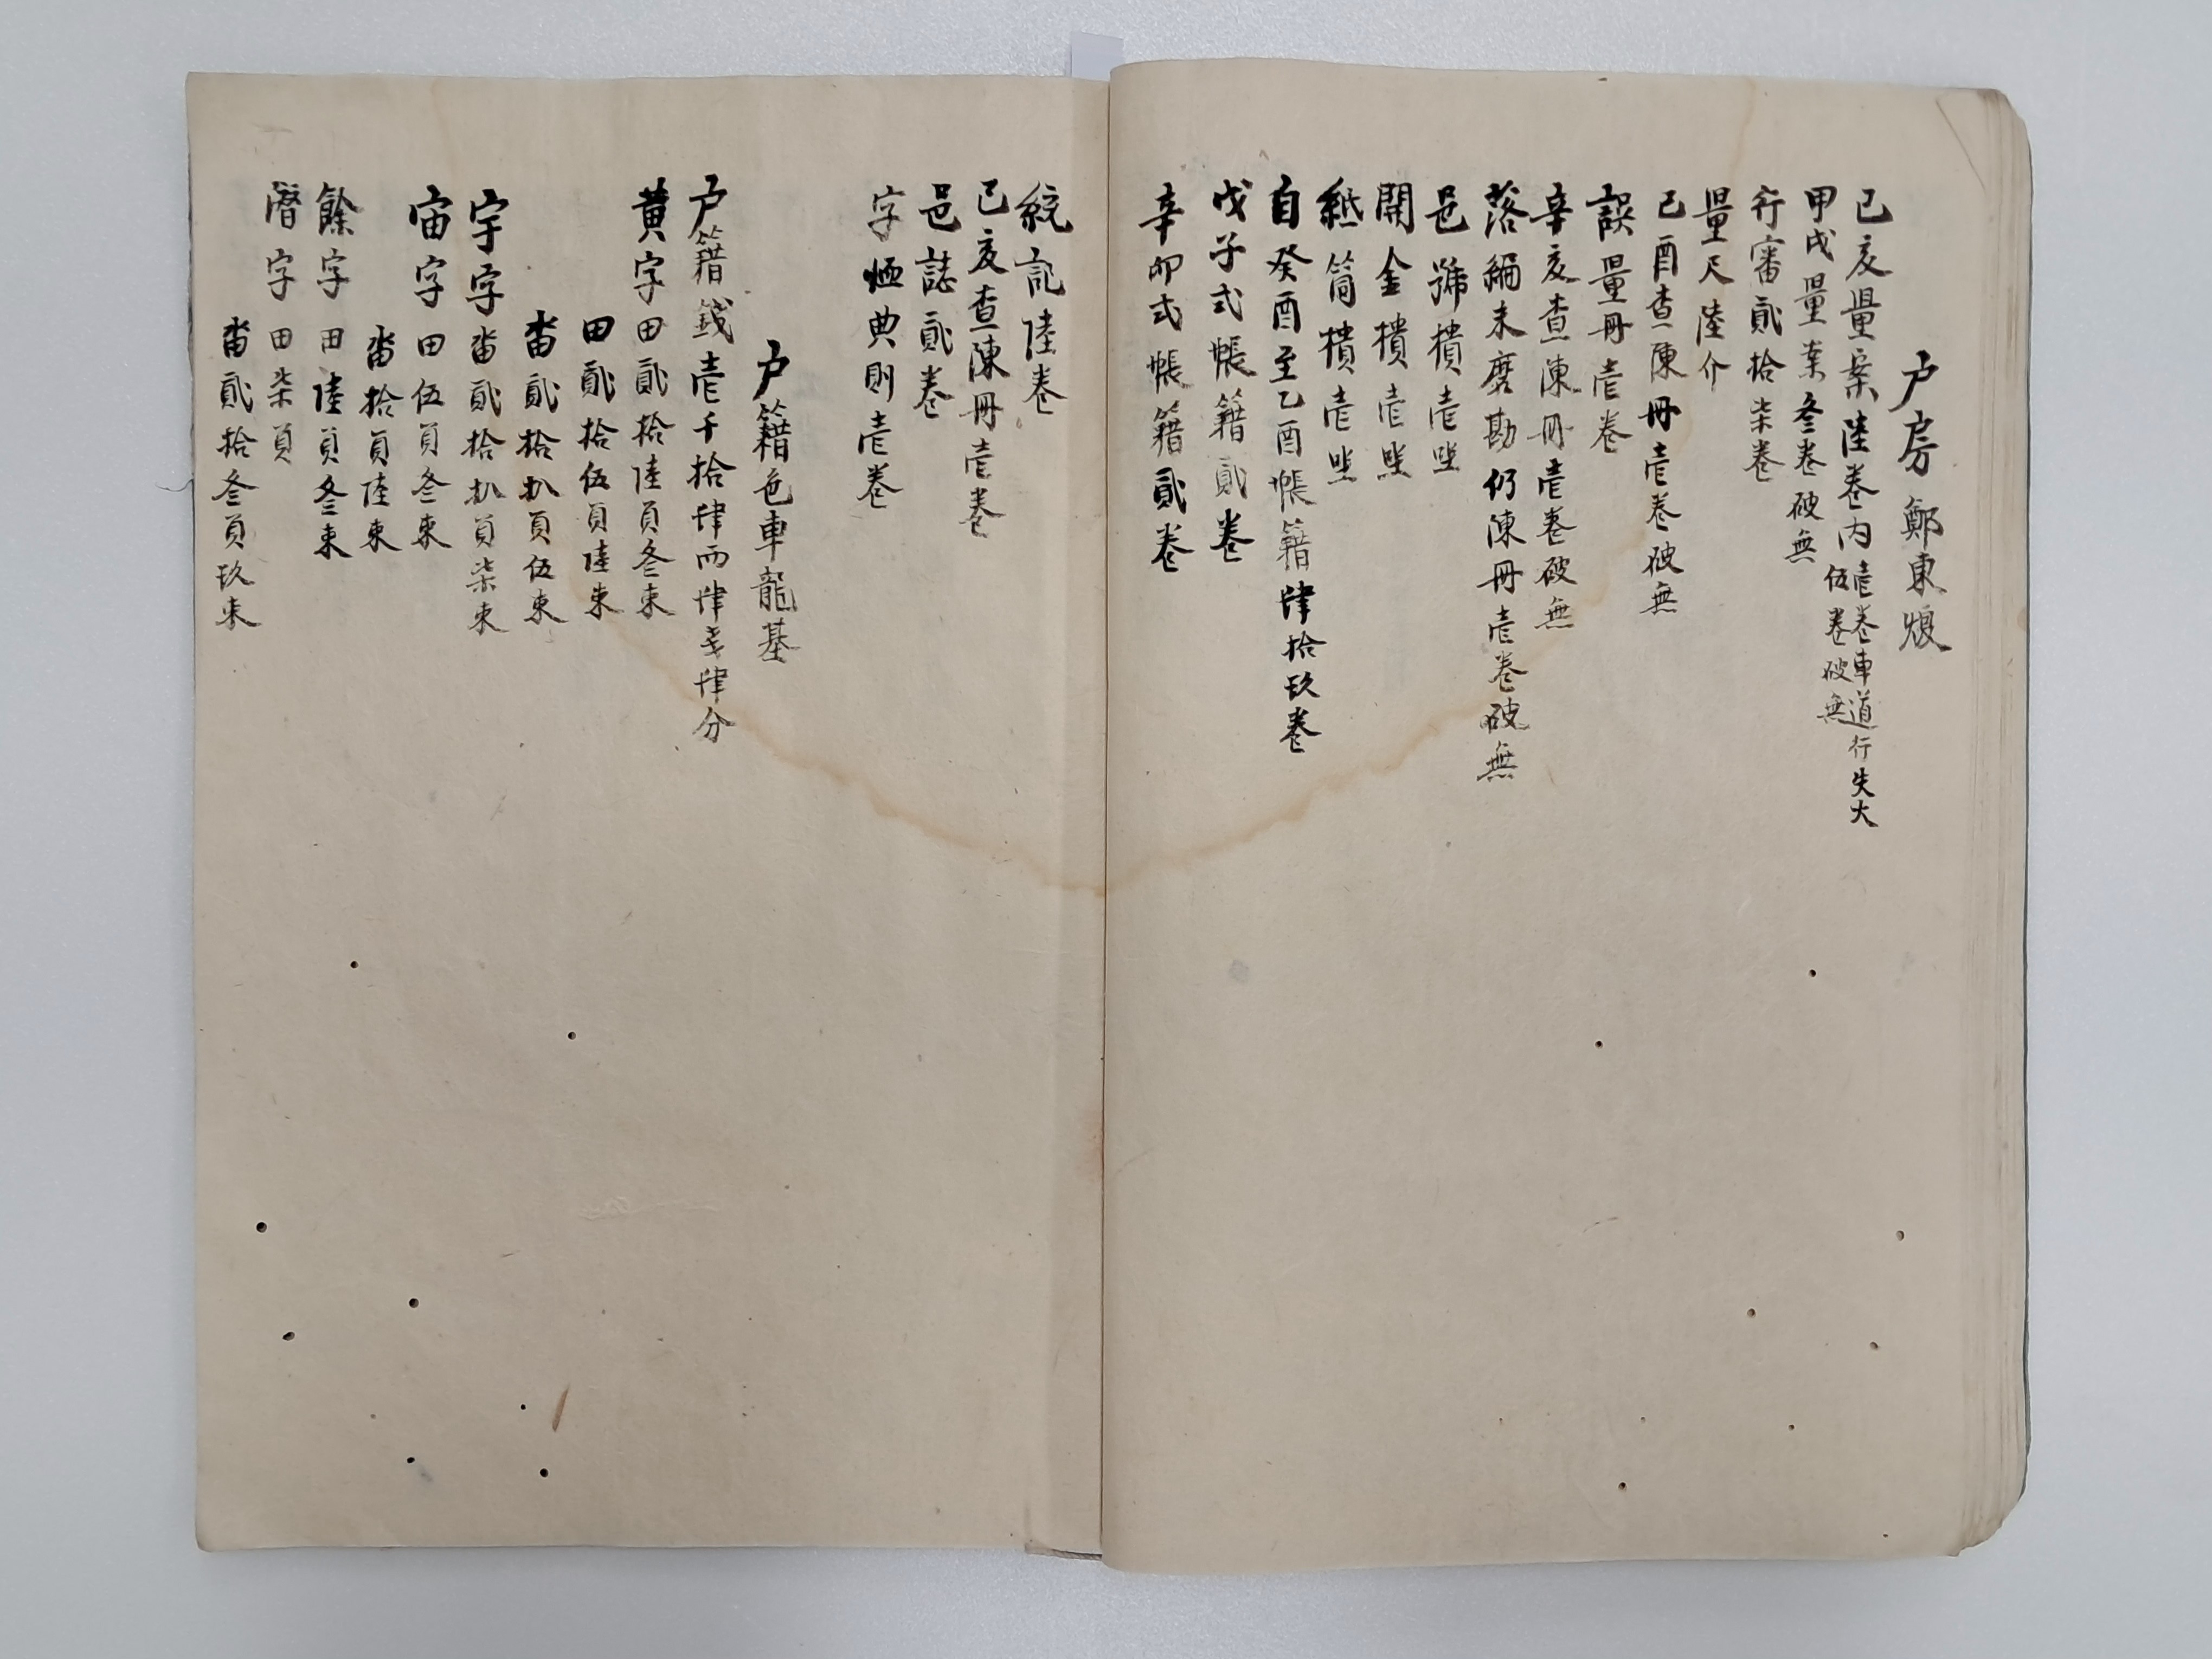 户房 鄭東煅
己亥量案陸卷內壱卷車道行失火
伍卷破無
甲戌量案叁卷破無
行審貳拾柒卷
量尺陸介
己酉查陳冊壱卷破無
誤量冊壱卷
辛亥查陳冊壱卷破無
落編未磨勘仍陳冊壱卷破無
邑號樻壱坐
開金樻壱坐
紙筒樻壱坐
自癸酉至乙酉帳籍肆拾玖卷
戊子式帳籍貳卷
辛卯式帳籍貳卷
統記陸卷
己亥查陳冊壱卷
邑誌貳卷
字恤典則壱卷
户籍色車龍基
户籍錢壱千拾肆兩肆戔肆分
黃字田貳拾陸負叁束
田貳拾伍負陸束
畓貳拾捌負伍束
宇字畓貳拾捌負柒束
宙字田伍負叁束
畓拾負陸束
餘字田陸負叁束
潛字田柒負
畓貳拾叁負玖束